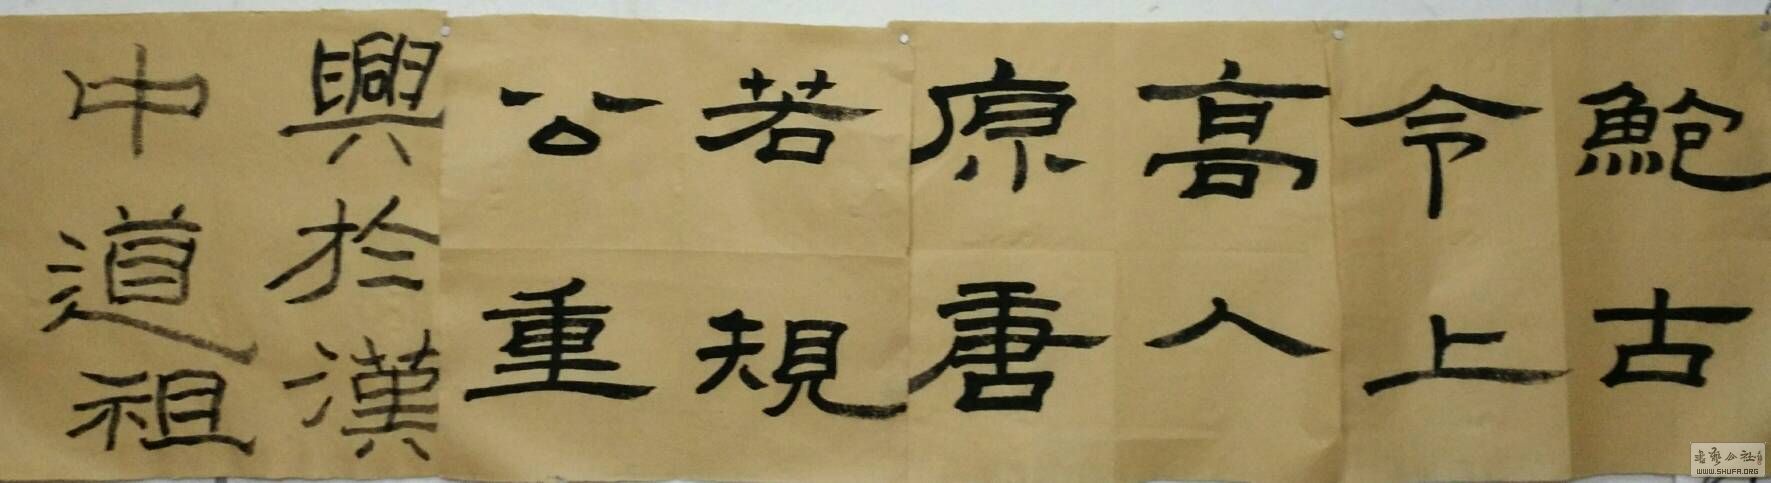 鮑古
令上
高人
原唐
若規
公重
興於漢
中道祖
书法公社
WWW.SHUFA.ORG